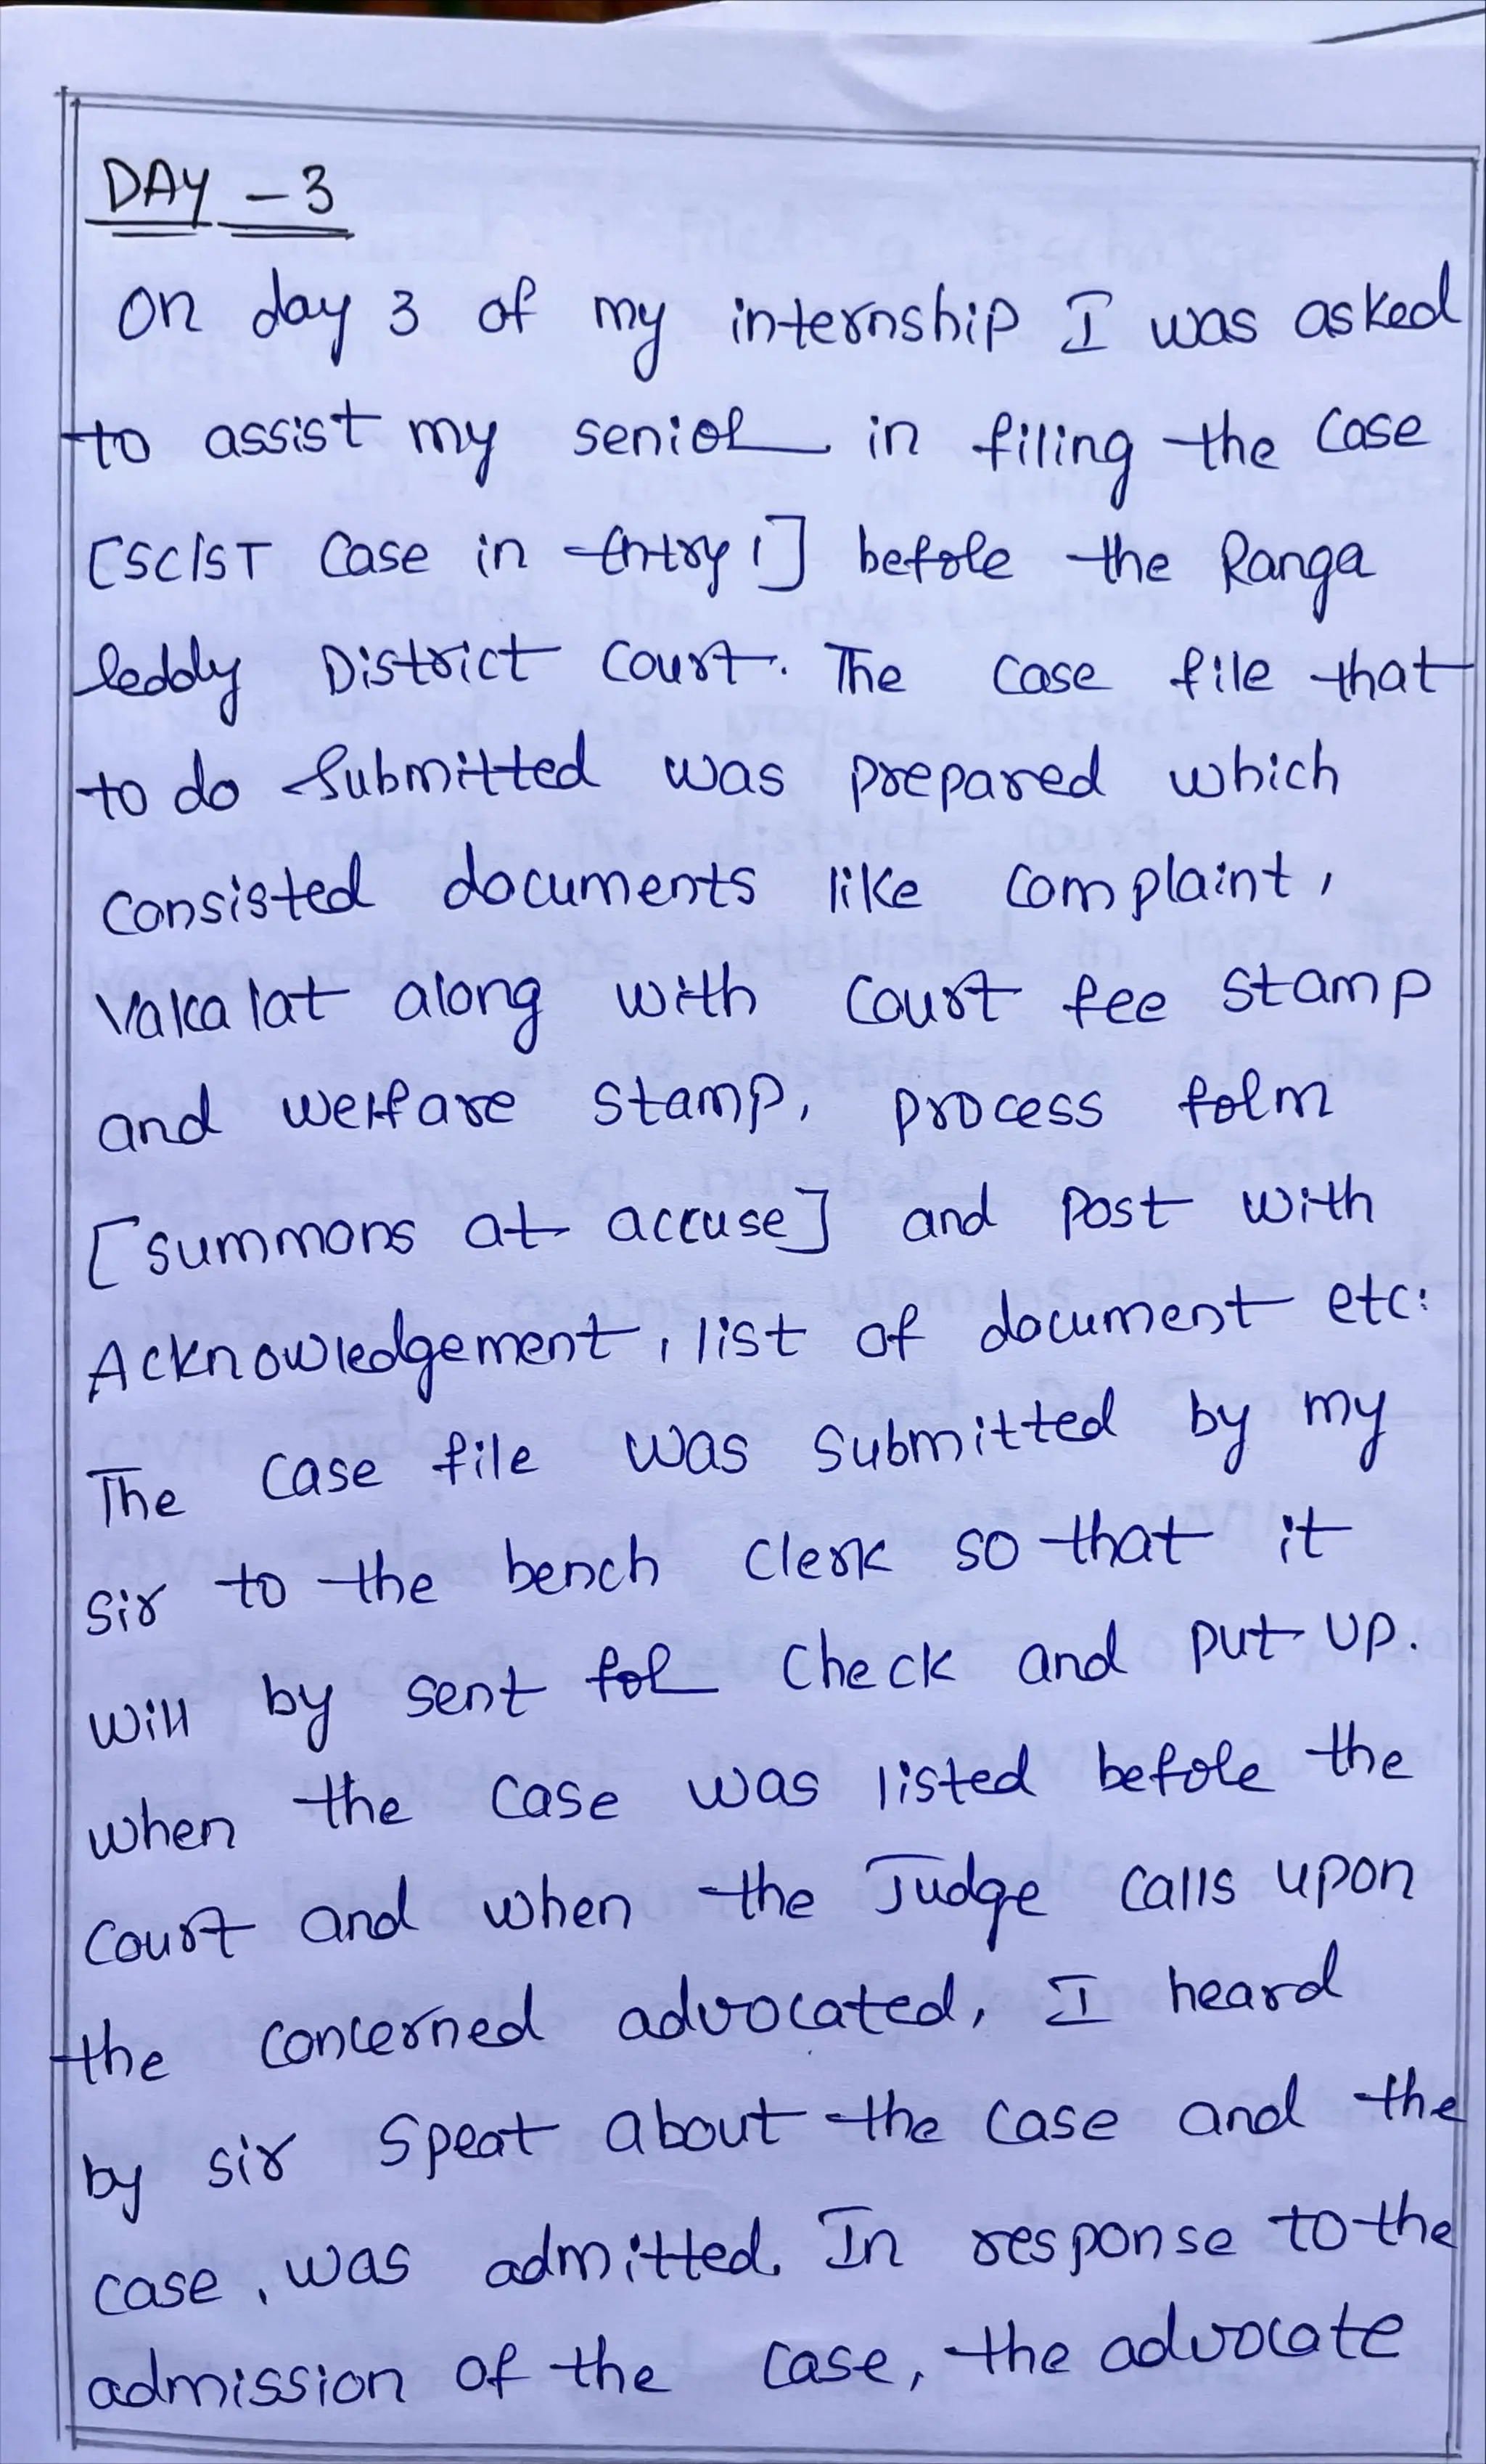 DAY - 3
On day 3 of my internship I was asked
to assist my senior in filing the case
[SC/ST Case in Entry 1] before the Ranga
Reddy District Court. The case file that
to do Submitted was prepared which
consisted documents like complaint,
Vakalat along with Court fee stamp
and welfare stamp, process form
[summons at accuse] and Post with
Acknowledgement, list of document etc.
The case file was submitted by my
sir to the bench clerk so that it
will by sent for check and put up.
when the case was listed before the
court and when the Judge calls upon
the concerned advocated, I heard
by sir speat about the case and the
case, was admitted. In response to the
admission of the case, the advocate